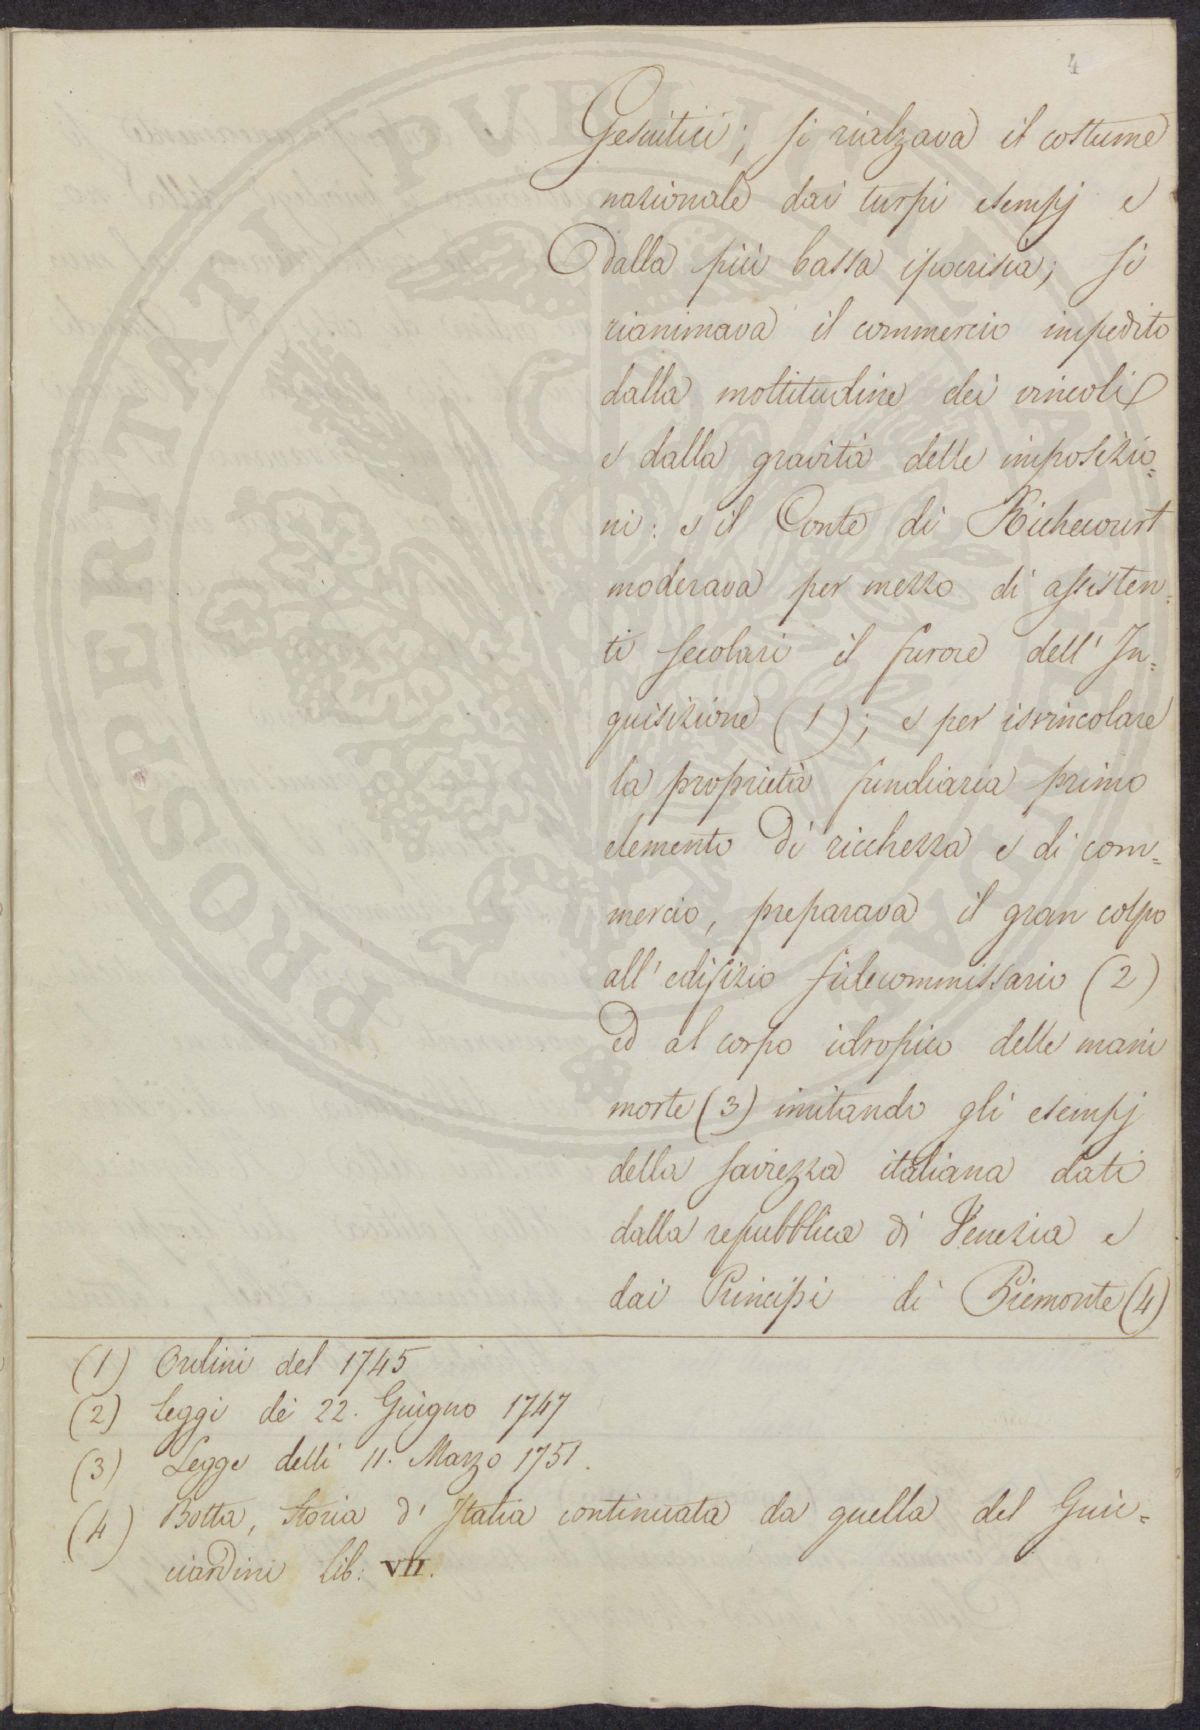 4
Gesuitici; si rialzava il costume
nazionale dai turpi esempj e
dalla più bassa ipocrisia; si
rianimava il commercio impedito
dalla moltitudine dei vincoli
e dalla gravità delle imposizio=
ni: e il Conte di Richecourt
moderava per mezzo di assisten=
ti secolari il furore dell' In=
quisizione (1); e per isvincolare
la proprietà fundiaria primo
elemento di ricchezza e di com=
mercio, preparava il gran colpo
all' edifizio fidecommissario (2)
ed al corpo idropico delle mani
morte (3) imitando gli esempj
della saviezza italiana dati
dalla repubblica di Venezia e
dai Principi di Piemonte (4)
(1) Ordini del 1745
(2) Leggi de 22. Giugno 1747
(3) Legge delli 11. Marzo 1751.
(4) Botta, Storia d' Italia continuata da quella del Guic=
ciardini Lib: VII.
PROSPERITATI PUBLICAE